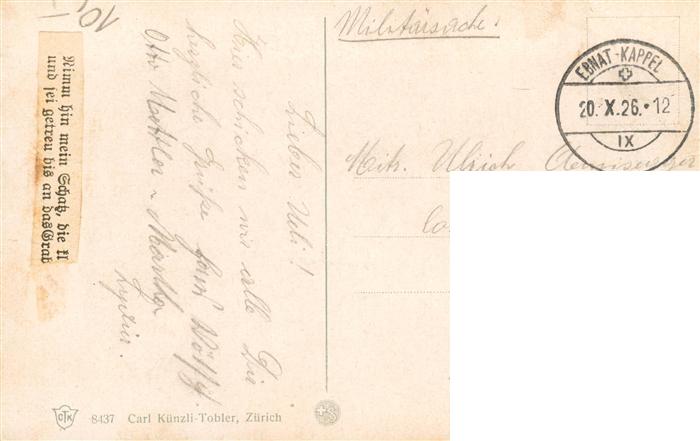 Militärsache!
EBNAT-KAPPEL
20. X. 26. 12
IX
Mitr. Ulrich
Lieber Ueli!
Hier schicken wir alle Dir
herzliche Grüsse
Otto Mettler
Martha
Lydia.
Nimm hin mein Schatz, die
und sei getreu bis an das Grab
CTK
8437 Carl Künzli-Tobler, Zürich